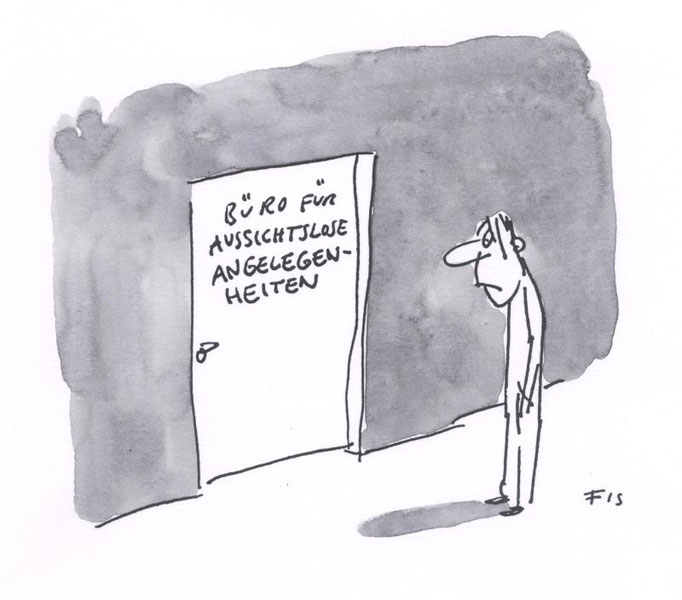 BÜRO FÜR
AUSSICHTSLOSE
ANGELEGEN-
HEITEN
FIS